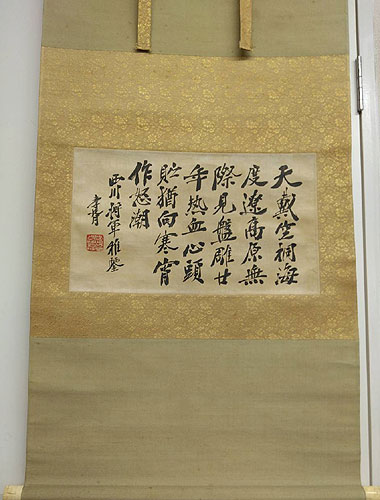 天戴空桐海
度遼高原無
際見盤雕廿
年熱血心頭
貯猶向寒宵
作怒潮
川將軍雅鑒
孝胥